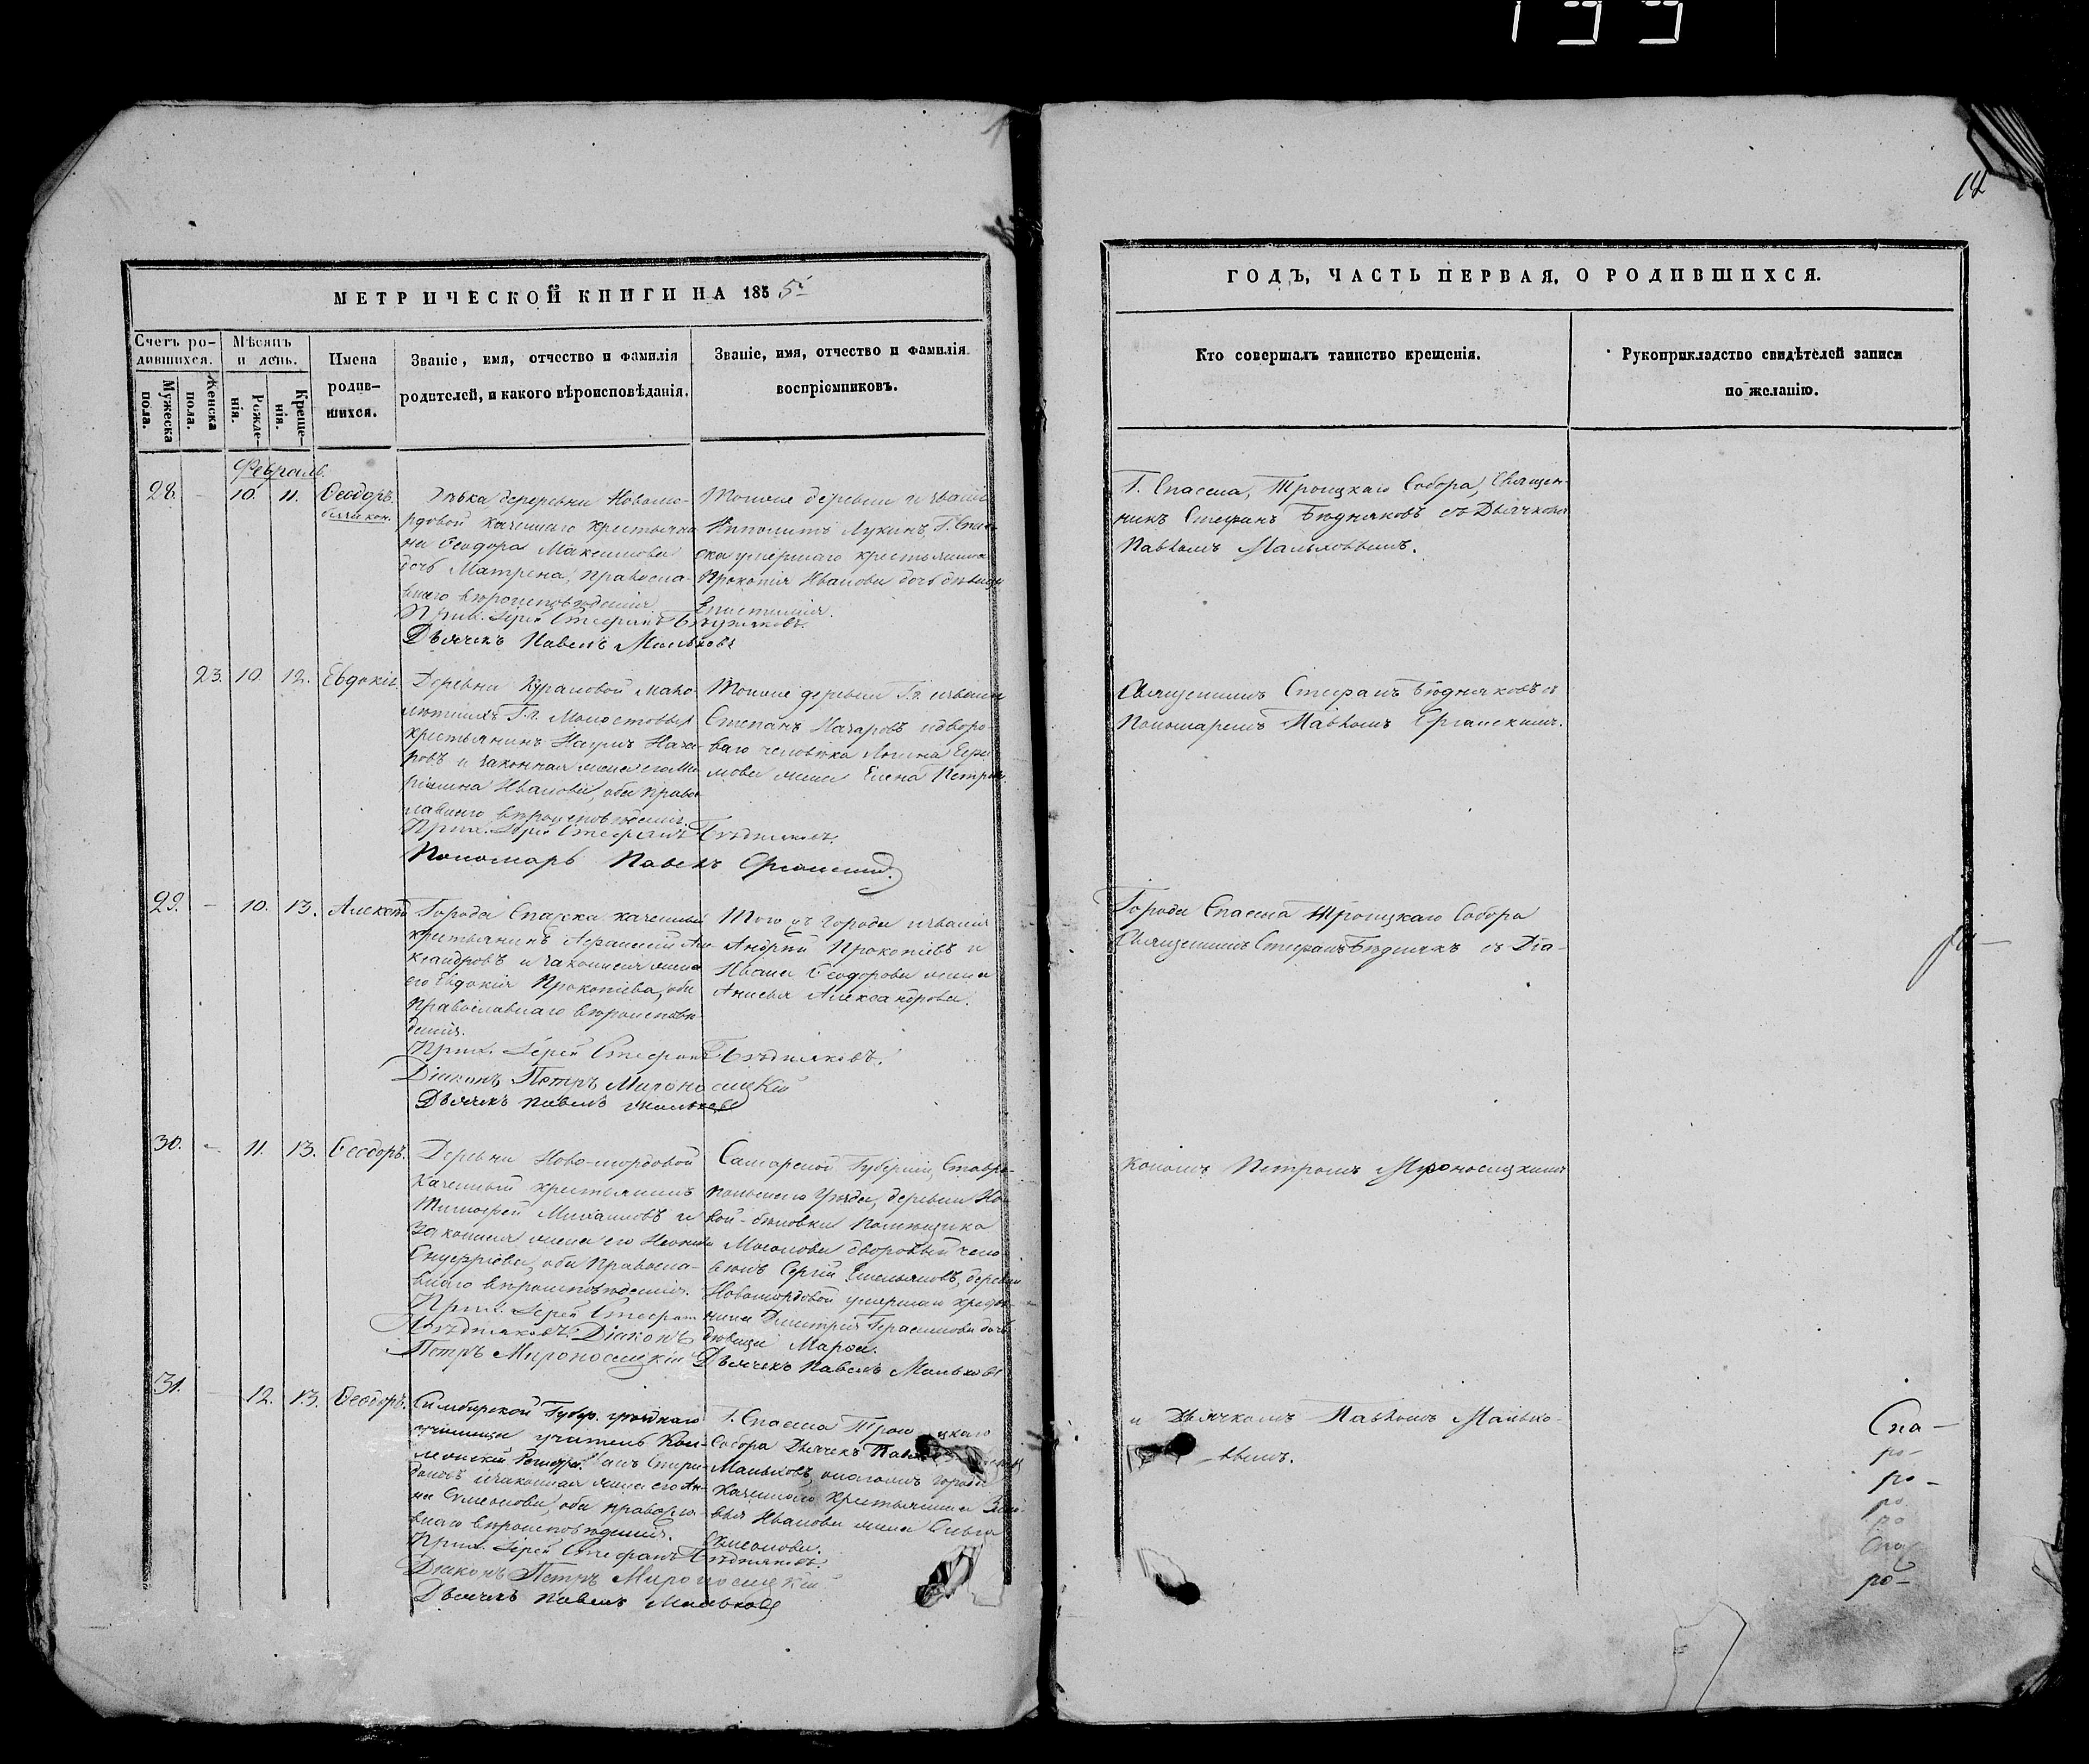 199
14
МЕТРИЧЕСКОЙ КНИГИ НА 1855
ГОДЪ, ЧАСТЬ ПЕРВАЯ, О РОДИВШИХСЯ.
Счетъ ро-
дившихся.
Мужеска
пола.
Женска
пола.
Мѣсяцъ
и день.
Рожде-
нія.
Креще-
нія.
Имена
родив-
шихся.
Званіе, имя, отчество и фамилія
родителей, и какого вѣроисповѣданія.
Званіе, имя, отчество и фамилія
воспріемниковъ.
Кто совершалъ таинство крещенія.
Рукоприкладство свидѣтелей записи
по желанію.
Февраль.
28. - 10. 11. Ѳеодоръ.
деревни Новомо-
рдовой казеннаго крестьяни
на Ѳеодора Максимова
дочь Матрена, православ-
наго вѣроисповѣданія.
Прих. Іерей Стефанъ Бѣдняковъ.
Дьячекъ Павелъ Мальковъ
Тойже деревни и званія
Ипполитъ Лукинъ, Г. Спас-
ска умершаго крестьянина
Прокопія Иванова дочь дѣвица
Епистимія.
Г. Спасска, Троицкаго Собора, Священ-
никъ Стефанъ Бѣдняковъ съ Дьячкомъ
Павломъ Мальковымъ.
23. 10. 12. Евдокія.
Деревни Кураловой мало-
лѣтнихъ Г.г.
крестьянинъ Наумъ Наза-
ровъ и законная жена его Ма
Иванова, оба право
славнаго вѣроисповѣданія.
Прих. Іерей Стефанъ Бѣдняковъ.
Пономарь Павелъ
Тойже деревни Г.г. и званія
Степанъ Назаровъ и дворо-
ваго человѣка
жена Елена Петрова.
Священникъ Стефанъ Бѣдняковъ съ
Пономаремъ Павломъ
29. - 10. 13. Алексѣй
Города Спасска казенный
крестьянинъ Афанасій Але
ксандровъ и законная жена
его Евдокія Прокопіева, оба
Православнаго вѣроисповѣ
данія.
Прих. Іерей Стефанъ Бѣдняковъ.
Діаконъ Петръ Мироносицкій
Дьячекъ Павелъ Мальковъ
Того жъ города и званія
Андрей Прокопіевъ и
Ивана Ѳеодорова жена
Анисья Александрова.
Города Спасска Троицкаго Собора
Священникъ Стефанъ Бѣдняковъ съ Діа-
30. - 11. 13. Ѳеодоръ.
Деревни Ново-мордовой
Казенный крестьянинъ
Тимофей Михайловъ и
Законная жена его
Онуфріева, оба Православ-
наго вѣроисповѣданія.
Прих. Іерей Стефанъ
Бѣдняковъ. Діаконъ
Петръ Мироносицкій
Самарской Губерніи, Ставро-
польскаго Уѣзда, деревни Но
вой-бѣловки Помѣщика
Мосолова дворовый чело-
вѣкъ Сергій Емельяновъ, деревни
Новомордовой умершаго кресть-
нина Димитрія Герасимова дочь
дѣвица Марѳа.
Дьячекъ Павелъ Мальковъ
кономъ Петромъ Мироносицкимъ
31. - 12. 13. Ѳеодоръ.
Симбирской Губер. уѣзднаго
училища учитель Кол-
лежскій
и законная жена его Ан-
на Симеонова, оба правосла-
внаго вѣроисповѣданія.
Прих. Іерей Стефанъ Бѣдняковъ.
Діаконъ Петръ Мироносицкій
Дьячекъ Павелъ Мальковъ
Г. Спасска Троицкаго
Собора Дьячекъ Павелъ
Мальковъ, города
Казеннаго Крестьянина
Иванова жена Ольга
Симеонова.
и Дьячкомъ Павломъ Малько-
-вымъ.
Спа-
ро-
ро-
ро
ро
Спа
ро-